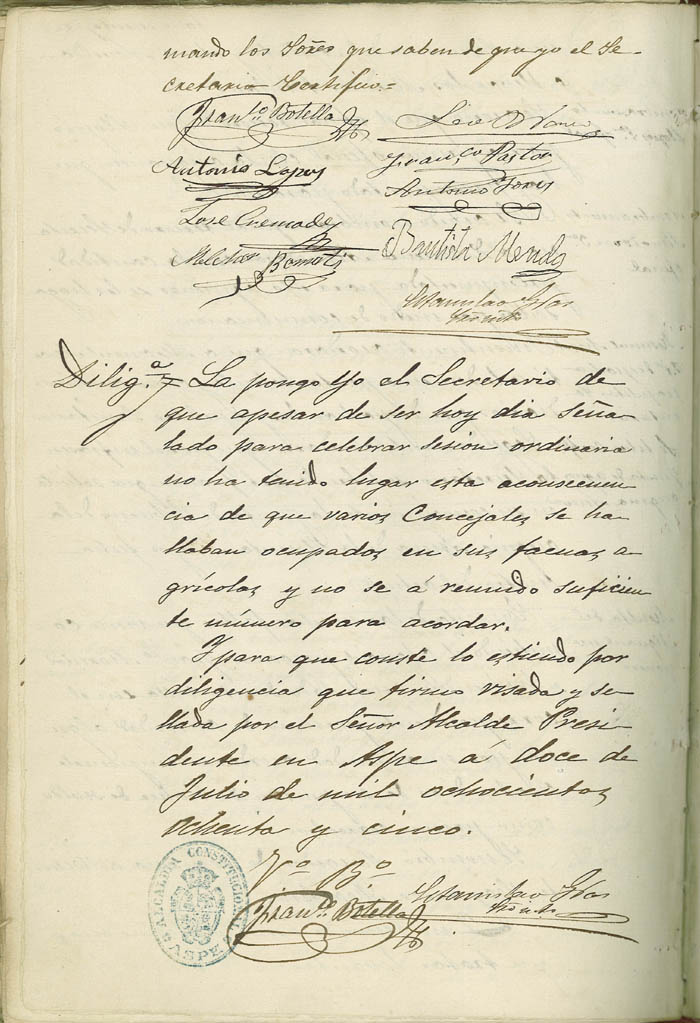 mando los Señes que saben de que yo el Se-
cretario Certifico.=
Franco. Botella
Antonio Lopez
Franco. Pastor
Antonio
José Cremades
Bautista
Melchor
Estanislao
Diliga. La pongo Yo el Secretario de
que apesar de ser hoy dia seña-
lado para celebrar sesion ordinaria
no ha tenido lugar esta aconsecuen
cia de que varios Concejales se ha
llaban ocupados en sus faenas a-
grícolas y no se á reunido suficien
te número para acordar.
Y para que conste lo estiendo por
diligencia que firmo visada y se-
llada por el Señor Alcalde Presi-
dente en Aspe á doce de
Julio de mil ochocientos
ochenta y cinco.
Vo. Bo.
Franco. Botella
Estanislao
ALCALDIA CONSTITUCIONAL
ASPE